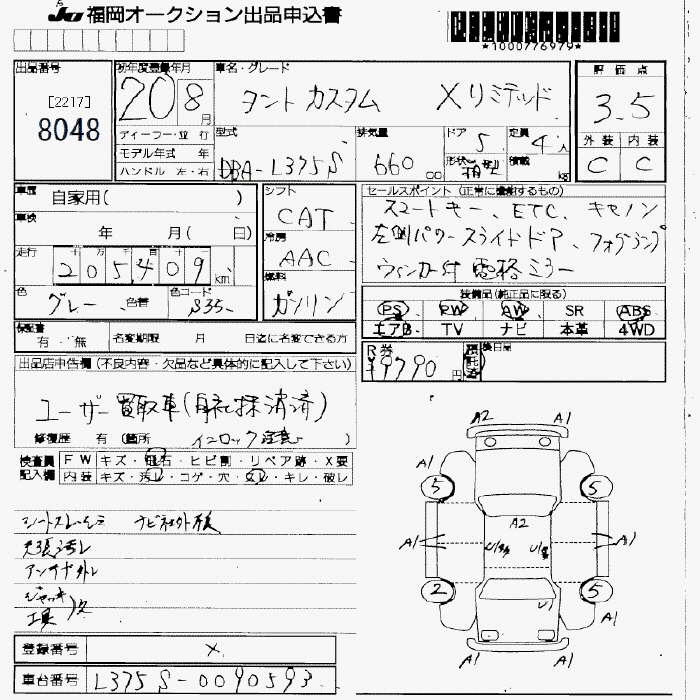 JU 福岡オークション出品申込書
*1000776979*
出品番号
[2217]
8048
初年度登録年月
20 8月
ディーラー・並 行
モデル年式 年
ハンドル 左・右
車名・グレード
タント カスタム Xリミテッド
型式
DBA-L375S
排気量
660 cc
ドア
5
形状
定員
4人
積載
kg
評価点
3.5
外装 内装
C C
車歴
自家用( )
車検
年 月( 日)
走行
205,409 km
色
グレー 色替
色コード
S35
シフト
CAT
冷房
AAC
燃料
ガソリン
セールスポイント (正常に機能するもの)
スマートキー、ETC、キセノン
左側パワースライドドア、フォグランプ
ウィンカー付 電格ミラー
装備品(純正品に限る)
PS PW AW SR ABS
エアB TV ナビ 本革 4WD
保証書
有・無
名変期限 月 日迄に名変できる方
R券
¥9790円
預託済
後日品
出品店申告欄 (不良内容・欠品など具体的に記入して下さい)
ユーザー買取車(自社抹消済)
修復歴 有 (箇所 インロック注意 )
検査員記入欄
FW キズ・飛石・ヒビ割・リペア跡・X要
内装 キズ・汚レ・コゲ・穴・スレ・キレ・破レ
シートスレシミ ナビ社外後
天張汚レ
アンテナ外レ
ジャッキ
工具 )欠
登録番号 ×
車台番号 L375S-0090593
A2 A1
A1
5 5
A2
A1 A1
2 5
U1
A1
A1